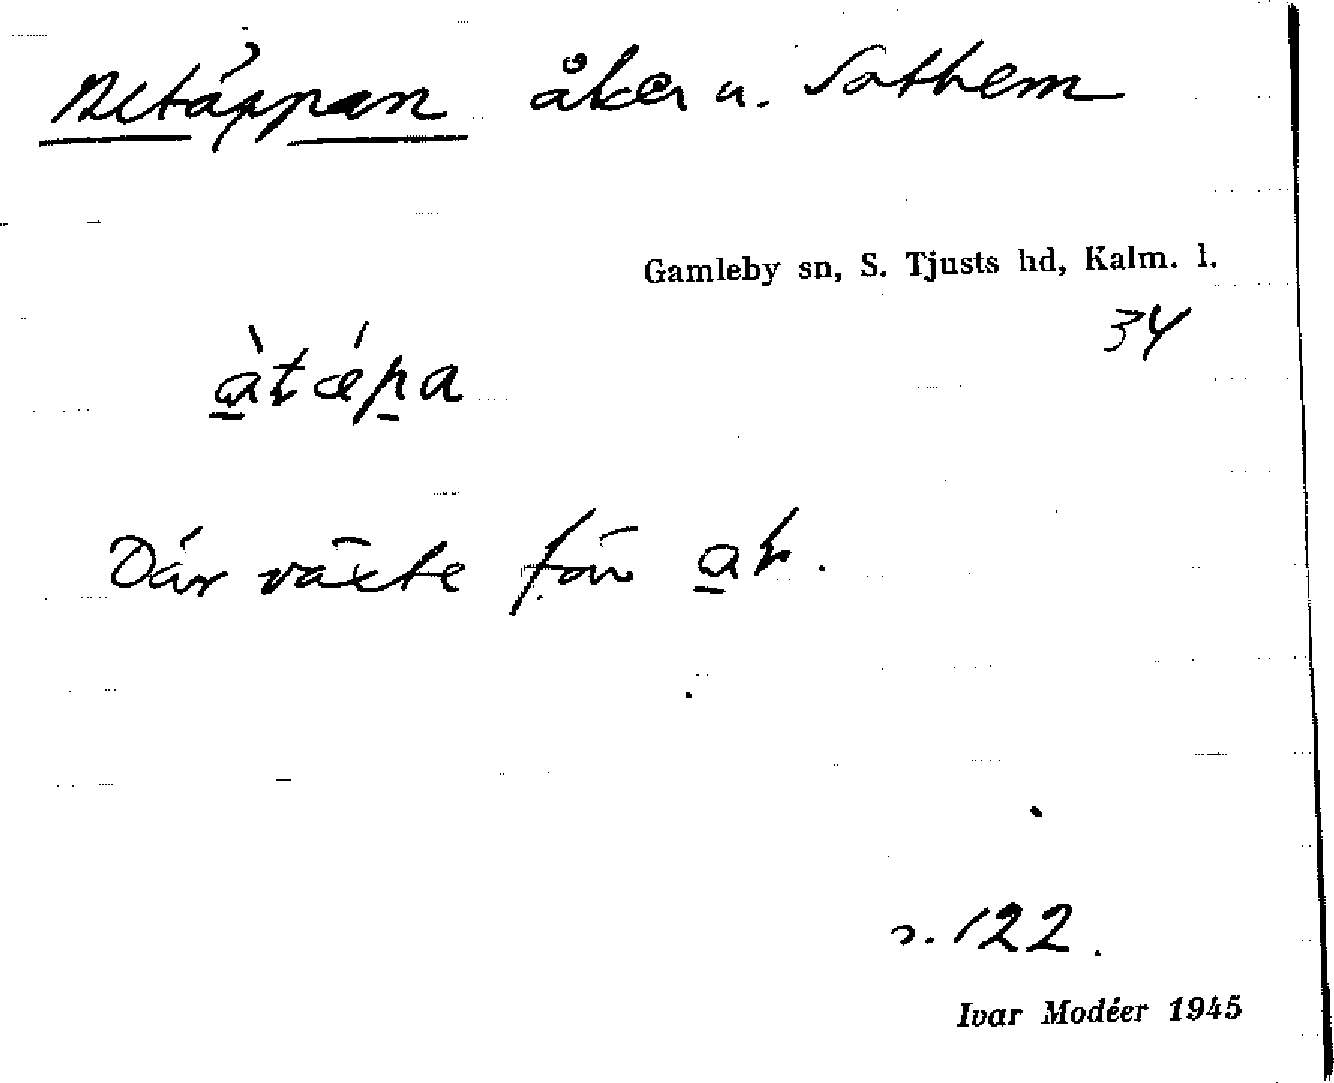 Altäppan åker u. Sothem
Gamleby sn, S. Tjusts hd, Kalm. l.
34
àtǽpa
Där växte förr al.
s. 122.
Ivar Modéer 1945